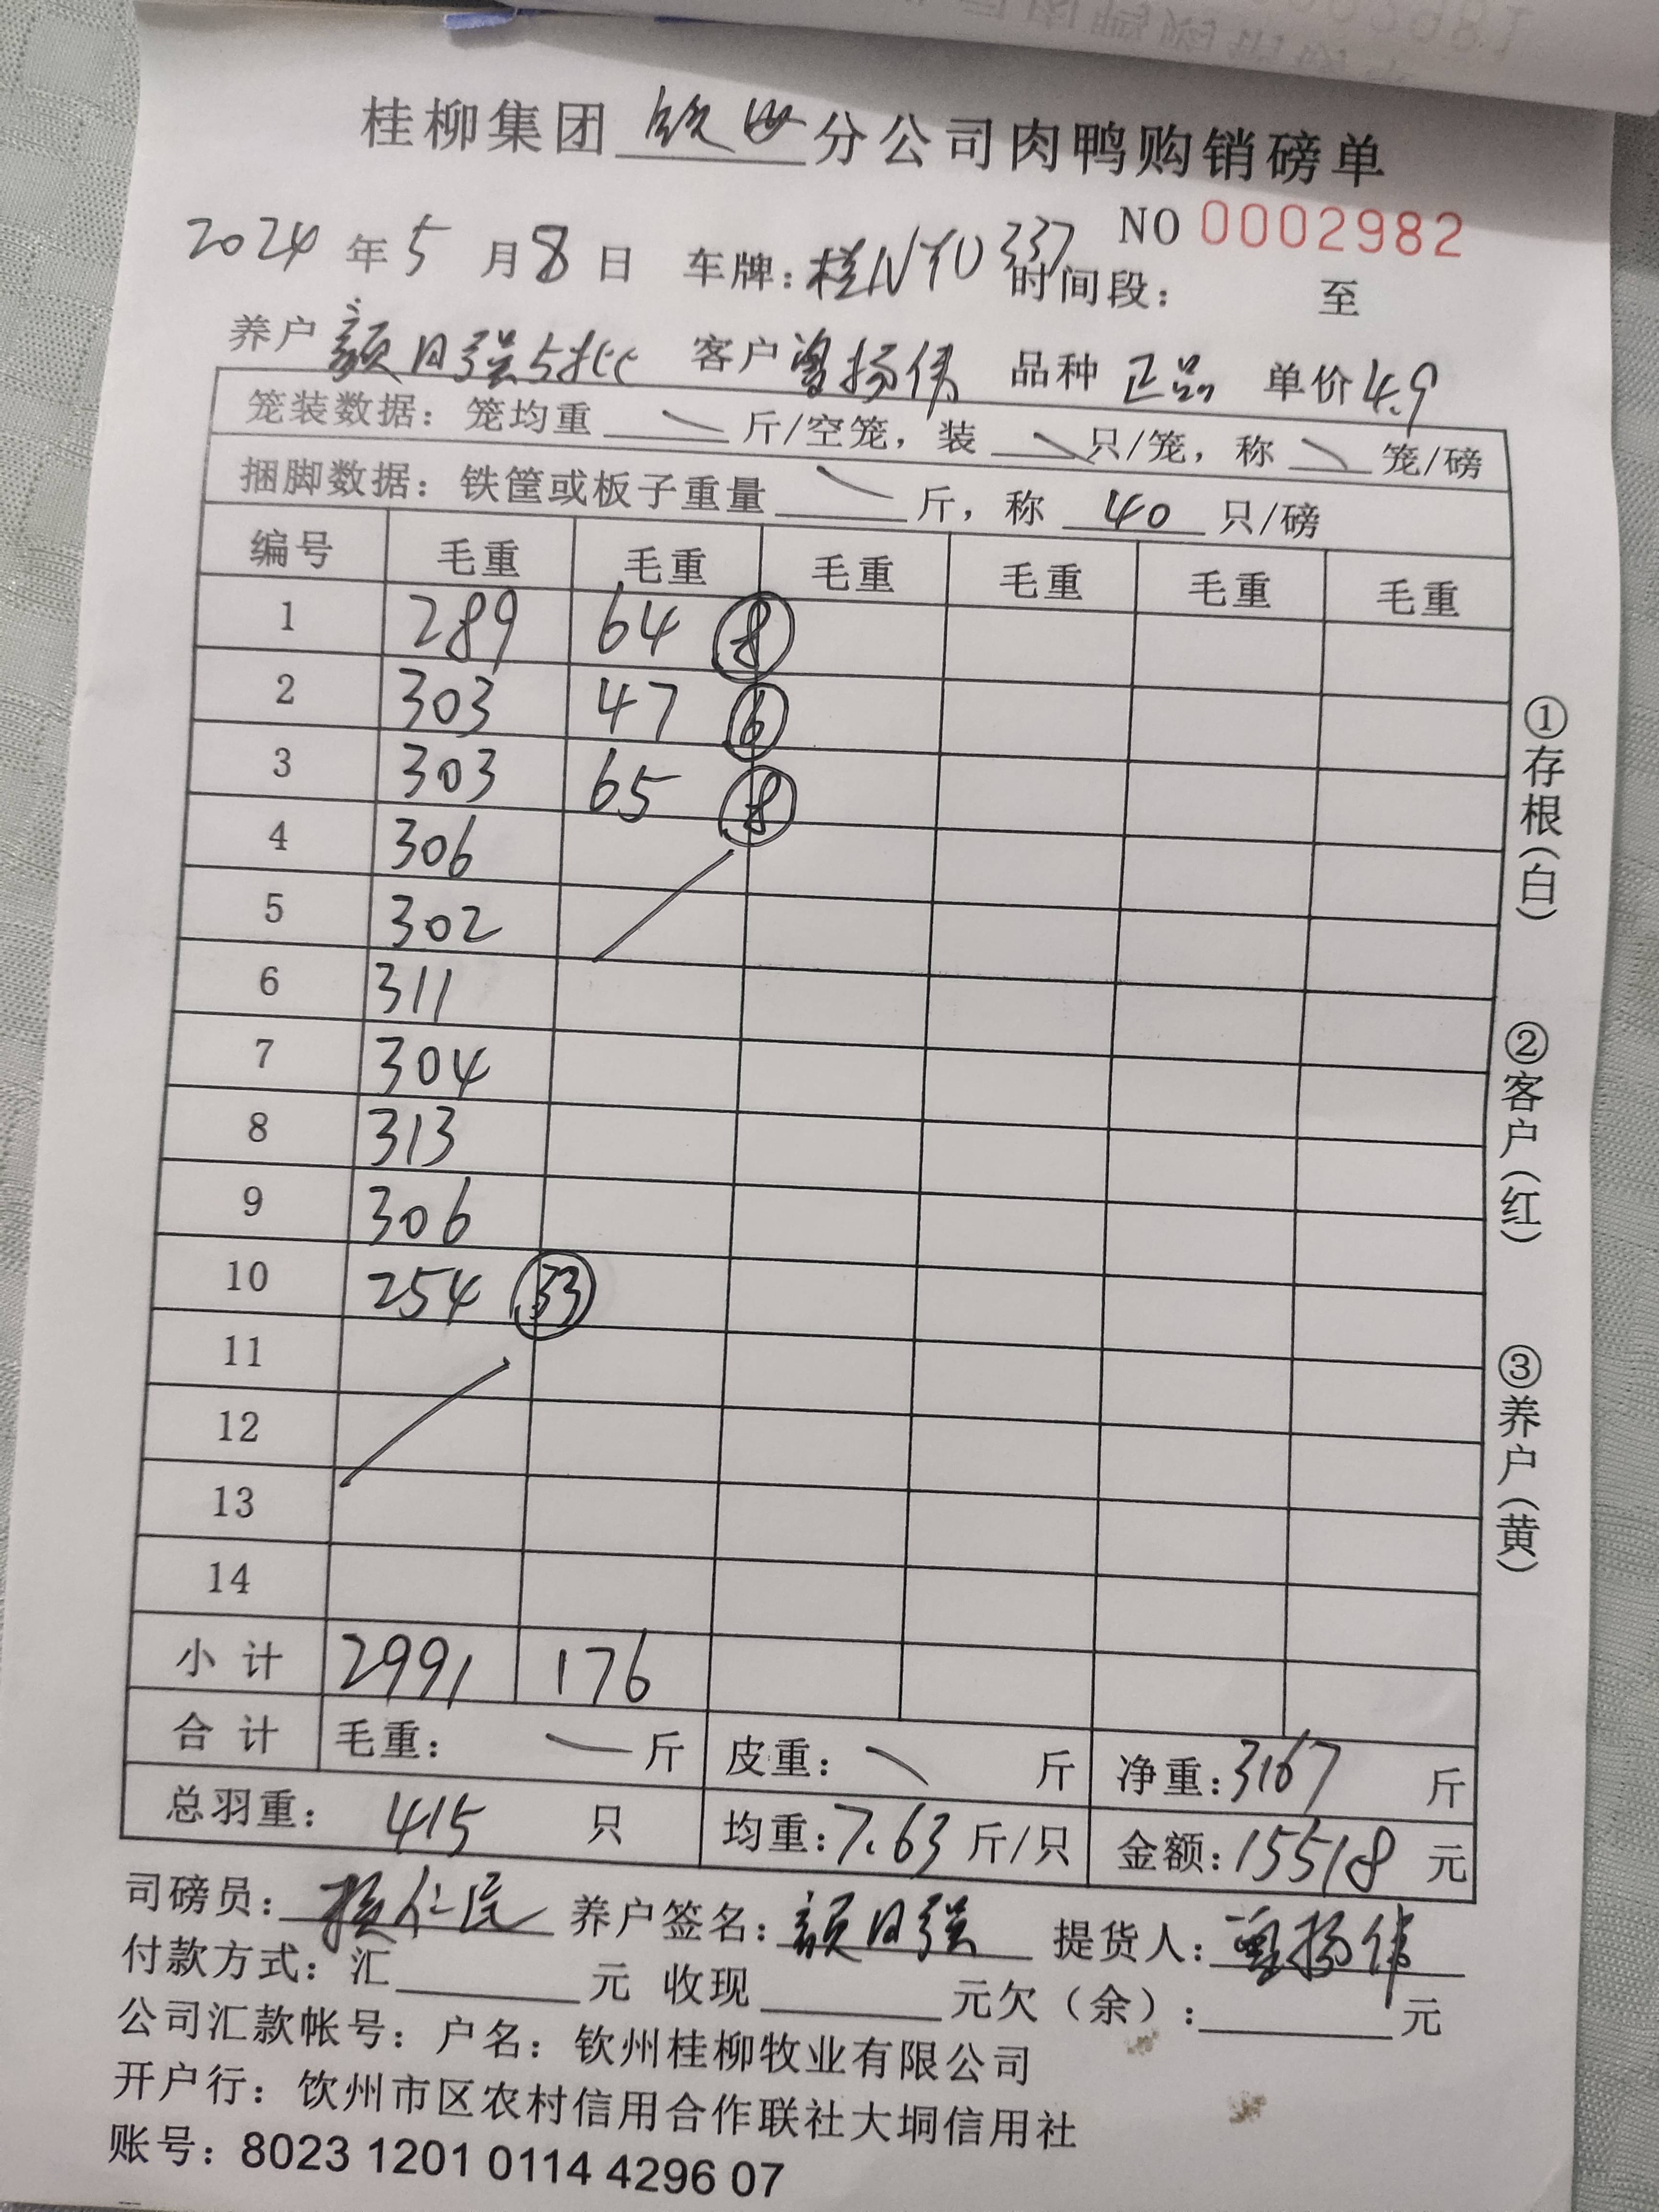 桂柳集团 钦州 分公司肉鸭购销磅单
NO 0002982
2024 年 5 月 8 日 车牌：桂NY0337 时间段： 至
养户 颜日强5批 客户 曾扬伟 品种 正品 单价 4.9
笼装数据：笼均重 斤/空笼，装 只/笼，称 笼/磅
捆脚数据：铁筐或板子重量 斤，称 40 只/磅
编号 毛重 毛重 毛重 毛重 毛重 毛重
1 289 64 8
2 303 47 6
3 303 65 8
4 306
5 302
6 311
7 304
8 313
9 306
10 254 33
11
12
13
14
小计 2991 176
合计 毛重： 斤 皮重： 斤 净重：3167 斤
总羽重： 415 只 均重：7.63 斤/只 金额：15518 元
司磅员： 仁民 养户签名：颜日强 提货人：曾扬伟
付款方式：汇 元 收现 元欠（余）： 元
公司汇款帐号：户名：钦州桂柳牧业有限公司
开户行：钦州市区农村信用合作联社大垌信用社
账号：8023 1201 0114 4296 07
①存根（白）
②客户（红）
③养户（黄）